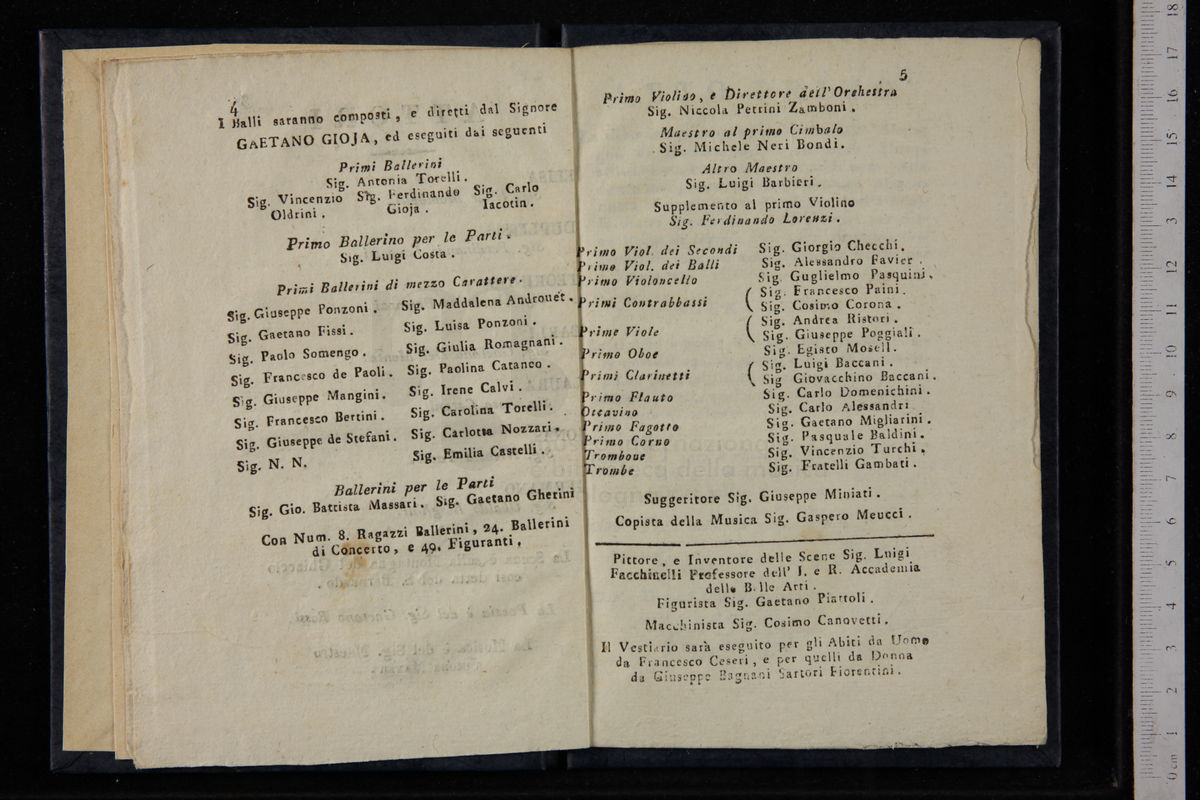 4
I Balli saranno composti, e diretti dal Signore
GAETANO GIOJA, ed eseguiti dai seguenti
Primi Ballerini
Sig. Antonia Torelli.
Sig. Vincenzio Sig. Ferdinando Sig. Carlo
Oldrini. Gioja. Iacotin.
Primo Ballerino per le Parti.
Sig. Luigi Costa.
Primi Ballerini di mezzo Carattere.
Sig. Giuseppe Ponzoni. Sig. Maddalena Androuet.
Sig. Gaetano Fissi. Sig. Luisa Ponzoni.
Sig. Paolo Somengo. Sig. Giulia Romagnani.
Sig. Francesco de Paoli. Sig. Paolina Cataneo.
Sig. Giuseppe Mangini. Sig. Irene Calvi.
Sig. Francesco Bertini. Sig. Carolina Torelli.
Sig. Giuseppe de Stefani. Sig. Carlotta Nozzari.
Sig. N. N. Sig. Emilia Castelli.
Ballerini per le Parti
Sig. Gio. Battista Massari. Sig. Gaetano Gherini
Con Num. 8. Ragazzi Ballerini, 24. Ballerini
di Concerto, e 40. Figuranti.
5
Primo Violino, e Direttore dell'Orchestra
Sig. Niccola Petrini Zamboni.
Maestro al primo Cimbalo
Sig. Michele Neri Bondi.
Altro Maestro
Sig. Luigi Barbieri.
Supplemento al primo Violino
Sig. Ferdinando Lorenzi.
Primo Viol. dei Secondi Sig. Giorgio Checchi.
Primo Viol. dei Balli Sig. Alessandro Favier.
Primo Violoncello Sig. Guglielmo Pasquini.
Primi Contrabbassi ( Sig. Francesco Paini.
( Sig. Cosimo Corona.
Prime Viole ( Sig. Andrea Ristori.
( Sig. Giuseppe Poggiali.
Primo Oboe Sig. Egisto Mosell.
Primi Clarinetti ( Sig. Luigi Baccani.
( Sig Giovacchino Baccani.
Primo Flauto Sig. Carlo Domenichini.
Ottavino Sig. Carlo Alessandri
Primo Fagotto Sig. Gaetano Migliarini.
Primo Corno Sig. Pasquale Baldini.
Trombone Sig. Vincenzio Turchi.
Trombe Sig. Fratelli Gambati.
Suggeritore Sig. Giuseppe Miniati.
Copista della Musica Sig. Gaspero Meucci.
Pittore, e Inventore delle Scene Sig. Luigi
Facchinelli Professore dell' I. e R. Accademia
delle B.lle Arti.
Figurista Sig. Gaetano Piattoli.
Macchinista Sig. Cosimo Canovetti.
Il Vestiario sarà eseguito per gli Abiti da Uomo
da Francesco Ceseri, e per quelli da Donna
da Giuseppe Bagnani Sartori Fiorentini.
0 cm 1 2 3 4 5 6 7 8 9 10 11 12 13 14 15 16 17 18